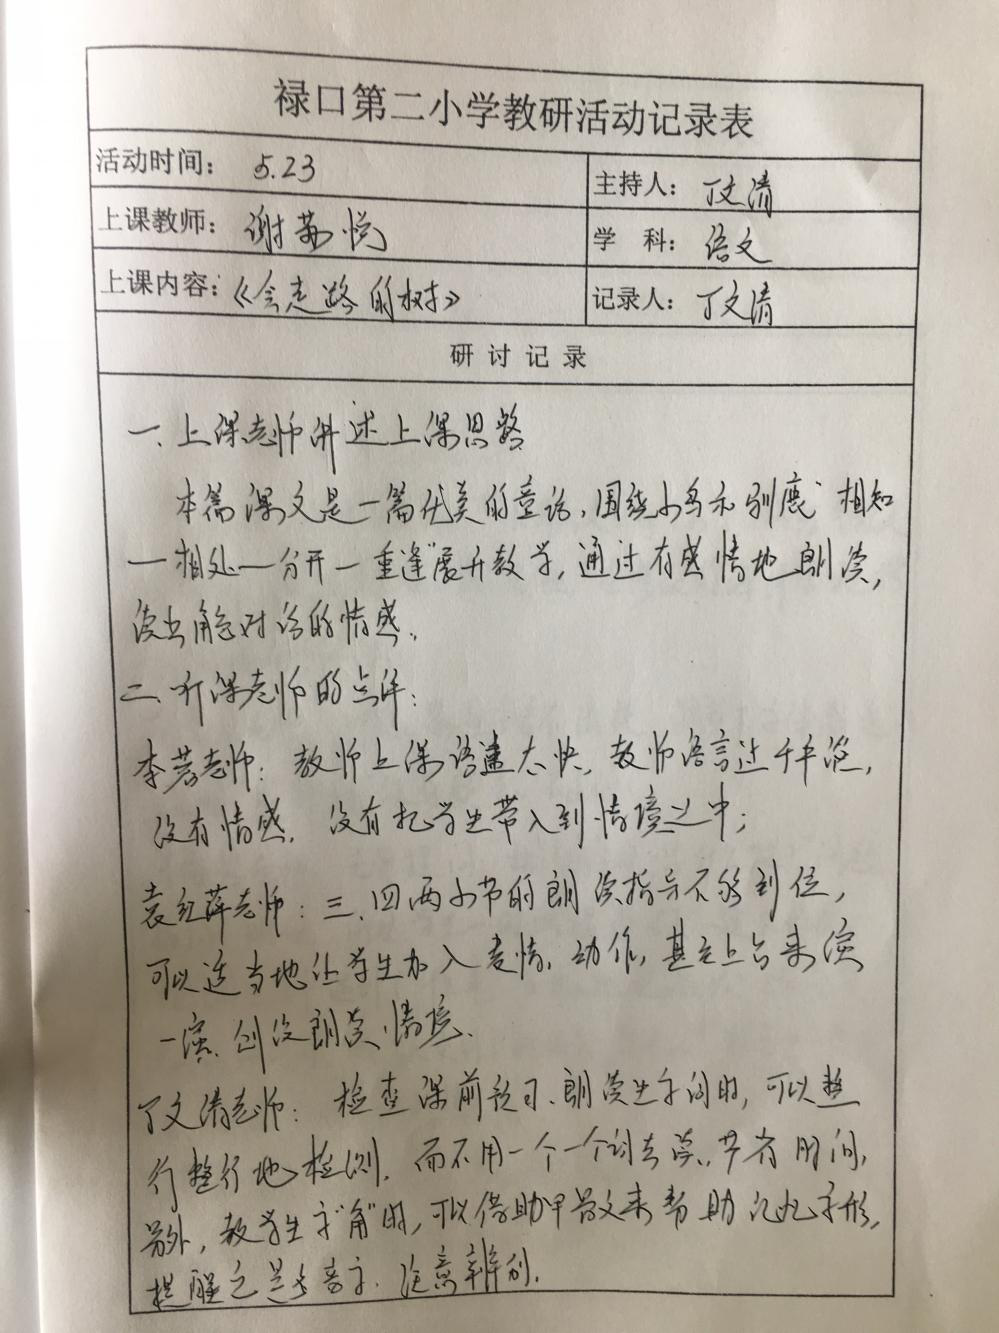 禄口第二小学教研活动记录表
活动时间: 5.23
主持人: 丁文清
上课教师: 谢苏悦
学 科: 语文
上课内容:《会走路的树》
记录人: 丁文清
研讨记录
一、上课老师讲述上课思路
本篇课文是一篇优美的童话,围绕小鸟和驯鹿“相知
一相处一分开一重逢”展开教学,通过有感情地朗读,
读出角色对话的情感.
二、听课老师的点评:
李蓉老师: 教师上课语速太快,教师语言过于平淡,
没有情感,没有把学生带入到情境之中;
袁红萍老师: 三、四两小节的朗读指导不够到位,
可以适当地让学生加入表情,动作,甚至上台来演
一演,创设朗读情境.
丁文清老师: 检查课前预习、朗读生字词时,可以整
行整行地检测,而不用一个一个词去读,节省时间,
另外,教学生字“角”时,可以借助甲骨文来帮助记忆字形,
提醒它是多音字,注意辨别.